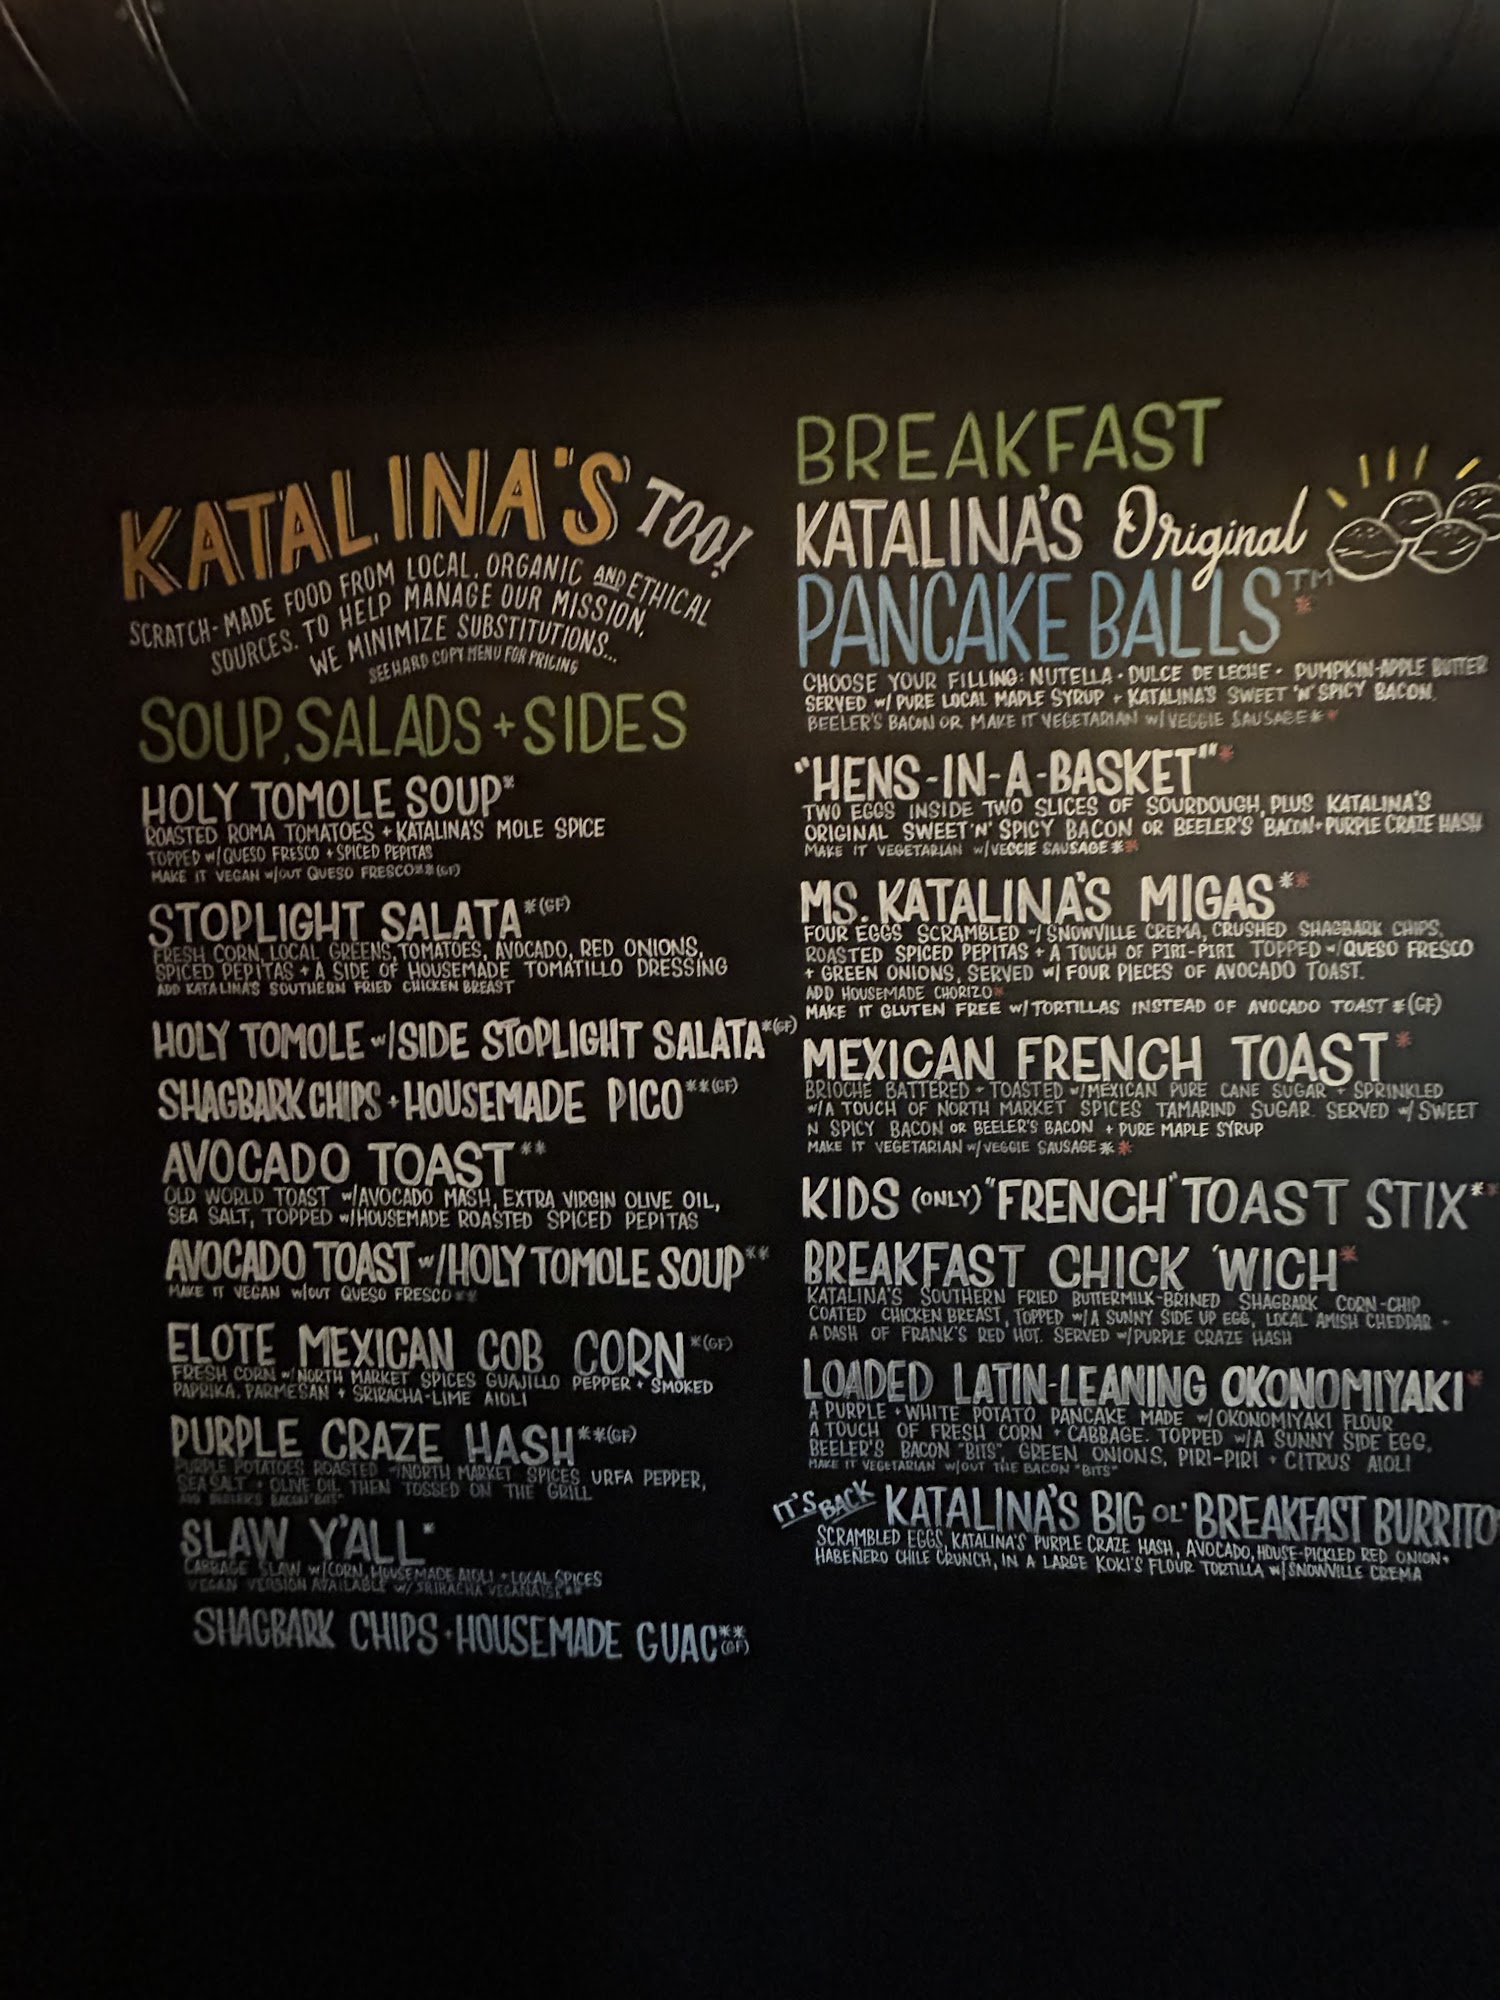 KATALINA'S TOO!
SCRATCH-MADE FOOD FROM LOCAL, ORGANIC AND ETHICAL
SOURCES. TO HELP MANAGE OUR MISSION,
WE MINIMIZE SUBSTITUTIONS...
SEE HARD COPY MENU FOR PRICING
SOUP, SALADS + SIDES
HOLY TOMOLE SOUP*
ROASTED ROMA TOMATOES + KATALINA'S MOLE SPICE
TOPPED w/QUESO FRESCO + SPICED PEPITAS
MAKE IT VEGAN w/OUT QUESO FRESCO**(GF)
STOPLIGHT SALATA*(GF)
FRESH CORN, LOCAL GREENS, TOMATOES, AVOCADO, RED ONIONS,
SPICED PEPITAS + A SIDE OF HOUSEMADE TOMATILLO DRESSING
ADD KATALINA'S SOUTHERN FRIED CHICKEN BREAST
HOLY TOMOLE w/SIDE STOPLIGHT SALATA*(GF)
SHAGBARK CHIPS + HOUSEMADE PICO**(GF)
AVOCADO TOAST**
OLD WORLD TOAST w/AVOCADO MASH, EXTRA VIRGIN OLIVE OIL,
SEA SALT, TOPPED w/HOUSEMADE ROASTED SPICED PEPITAS
AVOCADO TOAST w/HOLY TOMOLE SOUP**
MAKE IT VEGAN w/OUT QUESO FRESCO**
ELOTE MEXICAN COB CORN*(GF)
FRESH CORN w/NORTH MARKET SPICES GUAJILLO PEPPER + SMOKED
PAPRIKA, PARMESAN + SRIRACHA-LIME AIOLI
PURPLE CRAZE HASH**(GF)
PURPLE POTATOES ROASTED w/NORTH MARKET SPICES URFA PEPPER,
SEA SALT + OLIVE OIL THEN TOSSED ON THE GRILL
ADD BEELER'S BACON "BITS"
SLAW Y'ALL*
CABBAGE SLAW w/CORN, HOUSEMADE AIOLI + LOCAL SPICES
VEGAN VERSION AVAILABLE w/ SRIRACHA VEGANAISE**
SHAGBARK CHIPS + HOUSEMADE GUAC**(GF)
BREAKFAST
KATALINA'S Original
PANCAKE BALLS™*
CHOOSE YOUR FILLING: NUTELLA · DULCE DE LECHE · PUMPKIN-APPLE BUTTER
SERVED w/ PURE LOCAL MAPLE SYRUP + KATALINA'S SWEET 'N' SPICY BACON,
BEELER'S BACON OR MAKE IT VEGETARIAN w/VEGGIE SAUSAGE**
"HENS-IN-A-BASKET"*
TWO EGGS INSIDE TWO SLICES OF SOURDOUGH, PLUS KATALINA'S
ORIGINAL SWEET 'N' SPICY BACON OR BEELER'S BACON + PURPLE CRAZE HASH
MAKE IT VEGETARIAN w/VEGGIE SAUSAGE**
MS. KATALINA'S MIGAS**
FOUR EGGS SCRAMBLED w/ SNOWVILLE CREMA, CRUSHED SHAGBARK CHIPS,
ROASTED SPICED PEPITAS + A TOUCH OF PIRI-PIRI TOPPED w/QUESO FRESCO
+ GREEN ONIONS, SERVED w/ FOUR PIECES OF AVOCADO TOAST.
ADD HOUSEMADE CHORIZO*
MAKE IT GLUTEN FREE w/TORTILLAS INSTEAD OF AVOCADO TOAST *(GF)
MEXICAN FRENCH TOAST*
BRIOCHE BATTERED + TOASTED w/MEXICAN PURE CANE SUGAR + SPRINKLED
w/A TOUCH OF NORTH MARKET SPICES TAMARIND SUGAR. SERVED w/ SWEET
N SPICY BACON OR BEELER'S BACON + PURE MAPLE SYRUP
MAKE IT VEGETARIAN w/VEGGIE SAUSAGE**
KIDS (ONLY) "FRENCH" TOAST STIX**
BREAKFAST CHICK 'WICH*
KATALINA'S SOUTHERN FRIED BUTTERMILK-BRINED SHAGBARK CORN-CHIP
COATED CHICKEN BREAST, TOPPED w/A SUNNY SIDE UP EGG, LOCAL AMISH CHEDDAR +
A DASH OF FRANK'S RED HOT. SERVED w/PURPLE CRAZE HASH
LOADED LATIN-LEANING OKONOMIYAKI*
A PURPLE + WHITE POTATO PANCAKE MADE w/OKONOMIYAKI FLOUR
A TOUCH OF FRESH CORN + CABBAGE. TOPPED w/A SUNNY SIDE EGG,
BEELER'S BACON "BITS", GREEN ONIONS, PIRI-PIRI + CITRUS AIOLI
MAKE IT VEGETARIAN w/OUT THE BACON "BITS"
IT'S BACK KATALINA'S BIG OL' BREAKFAST BURRITO
SCRAMBLED EGGS, KATALINA'S PURPLE CRAZE HASH, AVOCADO, HOUSE-PICKLED RED ONION +
HABEÑERO CHILE CRUNCH, IN A LARGE KOKI'S FLOUR TORTILLA w/SNOWVILLE CREMA